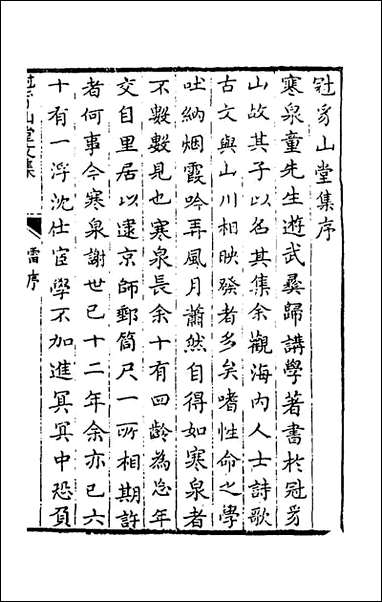 冠豸山堂集序
寒泉童先生遊武彞歸講學著書於冠豸
山故其子以名其集余觀海內人士詩歌
古文與山川相映發者多矣嗜性命之學
吐納烟霞吟弄風月蕭然自得如寒泉者
不數數見也寒泉長余十有四齡為忘年
交自里居以逮京師郵筒尺一所相期許
者何事今寒泉謝世已十二年余亦已六
十有一浮沈仕宦學不加進冥冥中恐負
冠豸山堂文集
雷序